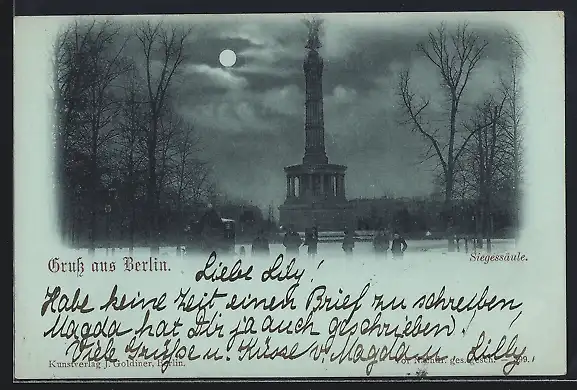 Gruß aus Berlin.
Siegessäule.
Liebe Lily!
Habe keine Zeit einen Brief zu schreiben,
Magda hat Dir ja auch geschrieben.
Viele Grüße u. Küsse v. Magda u. Lilly
Kunstverlag J. Goldiner, Berlin.
ges. gesch.